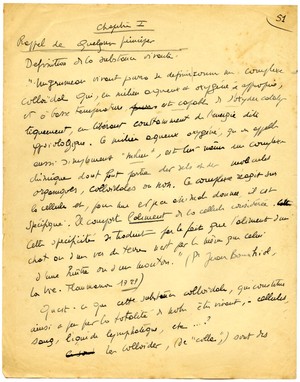 51
Chapitre I
Rappel de quelques principes
Définition de la substance vivante:
"Un grumeau vivant pourra se définir comme un complexe
colloïdal qui, en milieu aqueux et oxygéné approprié,
et à basse température est capable de s'oxyder cataly-
tiquement, en libérant constamment de l'énergie dite
physiologique. Le milieu aqueux oxygéné, qu'on appelle
aussi simplement "milieu", est lui-même un complexe
chimique dont font partie des sels et des molécules
organiques, colloïdales ou non. Ce complexe réagit sur
la cellule et, pour une espèce animale donnée, il est
spécifique. Il comporte l'aliment de la cellule considérée.
Cette spécificité se traduit par le fait que l'aliment d'un
chat ou d'un ver de terre n'est pas le même que celui
d'une huître ou d'un mouton." (Dr Jean
la vie. Flammarion
Qu'est-ce que cette substance colloïdale, qui constitue
ainsi a peu près la totalité de notre être vivant, - cellules,
sang, liquide lymphatique, etc ... ?
les colloïdes, (de "colle",) sont des